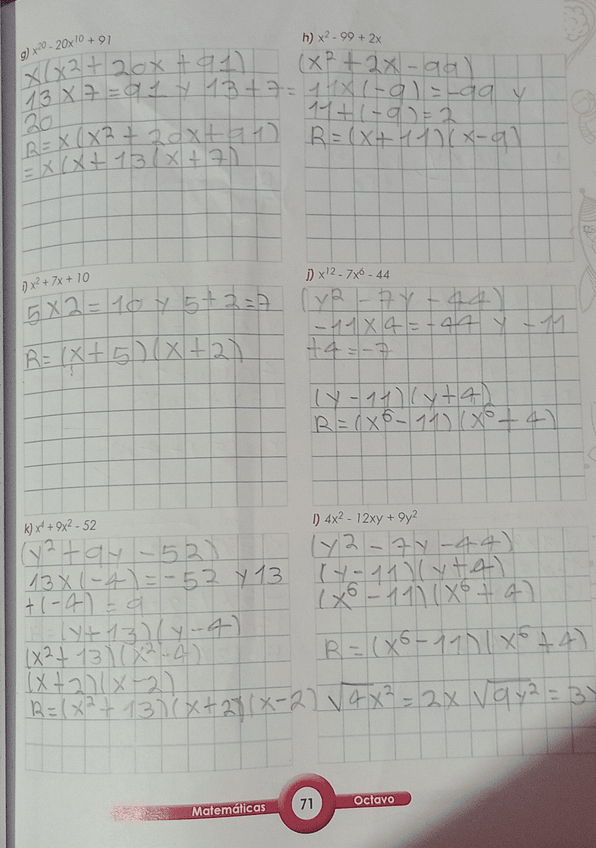 g) x²⁰ - 20x¹⁰ + 91
x(x² + 20x + 91)
13 x 7 = 91 y 13 + 7 =
20
R = x(x² + 20x + 91)
= x(x + 13(x + 7)
h) x² - 99 + 2x
(x² + 2x - 99)
11 x (-9) = -99 y
11 + (-9) = 2
R = (x + 11)(x - 9)
i) x² + 7x + 10
5 x 2 = 10 y 5 + 2 = 7
R = (x + 5)(x + 2)
j) x¹² - 7x⁶ - 44
(y² - 7y - 44)
-11 x 4 = -44 y -11
+4 = -7
(y - 11)(y + 4)
R = (x⁶ - 11)(x⁶ + 4)
k) x⁴ + 9x² - 52
(y² + 9y - 52)
13 x (-4) = -52 y 13
+(-4) = 9
(y + 13)(y - 4)
(x² + 13)(x² - 4)
(x + 2)(x - 2)
R = (x² + 13)(x + 2)(x - 2)
l) 4x² - 12xy + 9y²
(y² - 7y - 44)
(y - 11)(y + 4)
(x⁶ - 11)(x⁶ + 4)
R = (x⁶ - 11)(x⁶ + 4)
√4x² = 2x √9y² = 3y
Matemáticas 71 Octavo